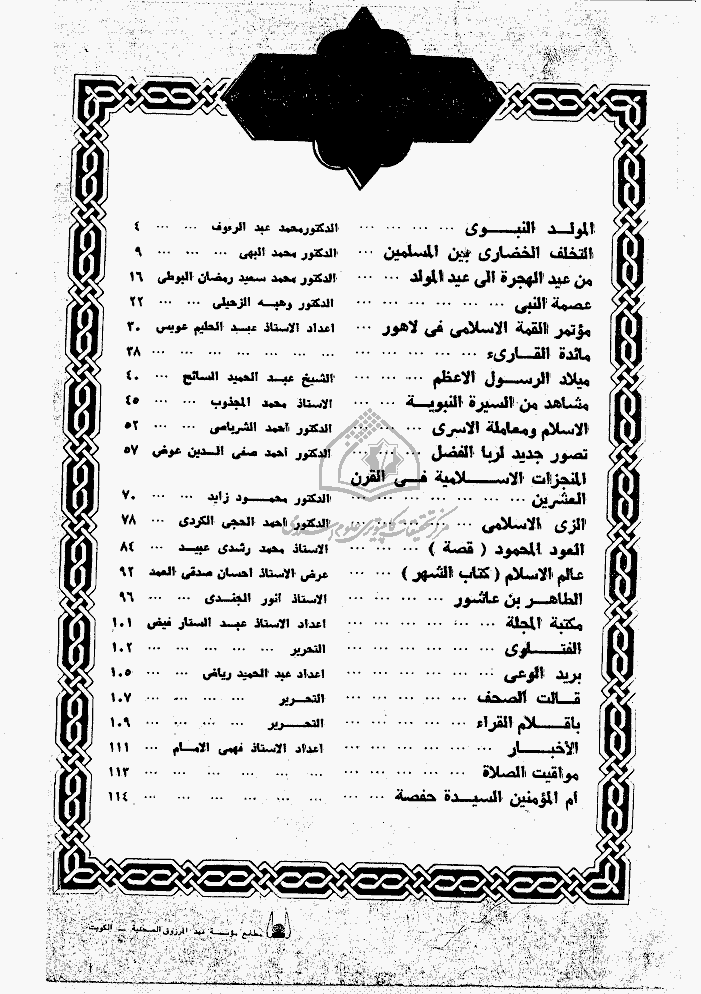 المولد النبوى ... ... ... ... الدكتور محمد عبد الرءوف ... ... ٤
التخلف الحضارى بين المسلمين ... الدكتور محمد البهى ... ... ... ٩
من عيد الهجرة الى عيد المولد ... ... الدكتور محمد سعيد رمضان البوطى ١٦
عصمة النبى ... ... ... ... ... ... الدكتور وهبه الزحيلى ... ... ٢٢
مؤتمر القمة الاسلامى فى لاهور ... اعداد الاستاذ عبد الحليم عويس ٣٠
مائدة القارىء ... ... ... ... ... ... ... ... ... ... ٣٨
ميلاد الرسول الاعظم ... ... ... الشيخ عبد الحميد السائح ... ٤٠
مشاهد من السيرة النبوية ... ... الاستاذ محمد المجذوب ... ... ٤٥
الاسلام ومعاملة الاسرى ... ... ... الدكتور احمد الشرباصى ... ... ٥٢
تصور جديد لربا الفضل ... ... ... الدكتور احمد صفى الدين عوض ٥٧
المنجزات الاسلامية فى القرن
العشرين ... ... ... ... ... ... الدكتور محمود زايد ... ... ٧٠
الزى الاسلامى ... ... ... ... ... الدكتور احمد الحجى الكردى ... ٧٨
العود المحمود ( قصة ) ... ... ... الاستاذ محمد رشدى عبيد ... ٨٤
عالم الاسلام ( كتاب الشهر ) ... ... عرض الاستاذ احسان صدقى العمد ٩٢
الطاهر بن عاشور ... ... ... ... الاستاذ انور الجندى ... ... ٩٦
مكتبة المجلة ... ... ... ... ... اعداد الاستاذ عبد الستار فيض ١٠١
الفتاوى ... ... ... ... ... ... التحرير ... ... ... ... ١٠٢
بريد الوعى ... ... ... ... ... اعداد عبد الحميد رياض ... ... ١٠٥
قالت الصحف ... ... ... ... ... التحرير ... ... ... ... ١٠٧
باقلام القراء ... ... ... ... ... التحرير ... ... ... ... ١٠٩
الأخبار ... ... ... ... ... ... اعداد الاستاذ فهمى الامام ... ١١١
مواقيت الصلاة ... ... ... ... ... ... ... ... ... ١١٣
أم المؤمنين السيدة حفصة ... ... ... ... ... ... ... ١١٤
مركز تحقيقات كامپيوترى علوم اسلامى
مطابع مؤسسة فهد المرزوق الصحفية - الكويت